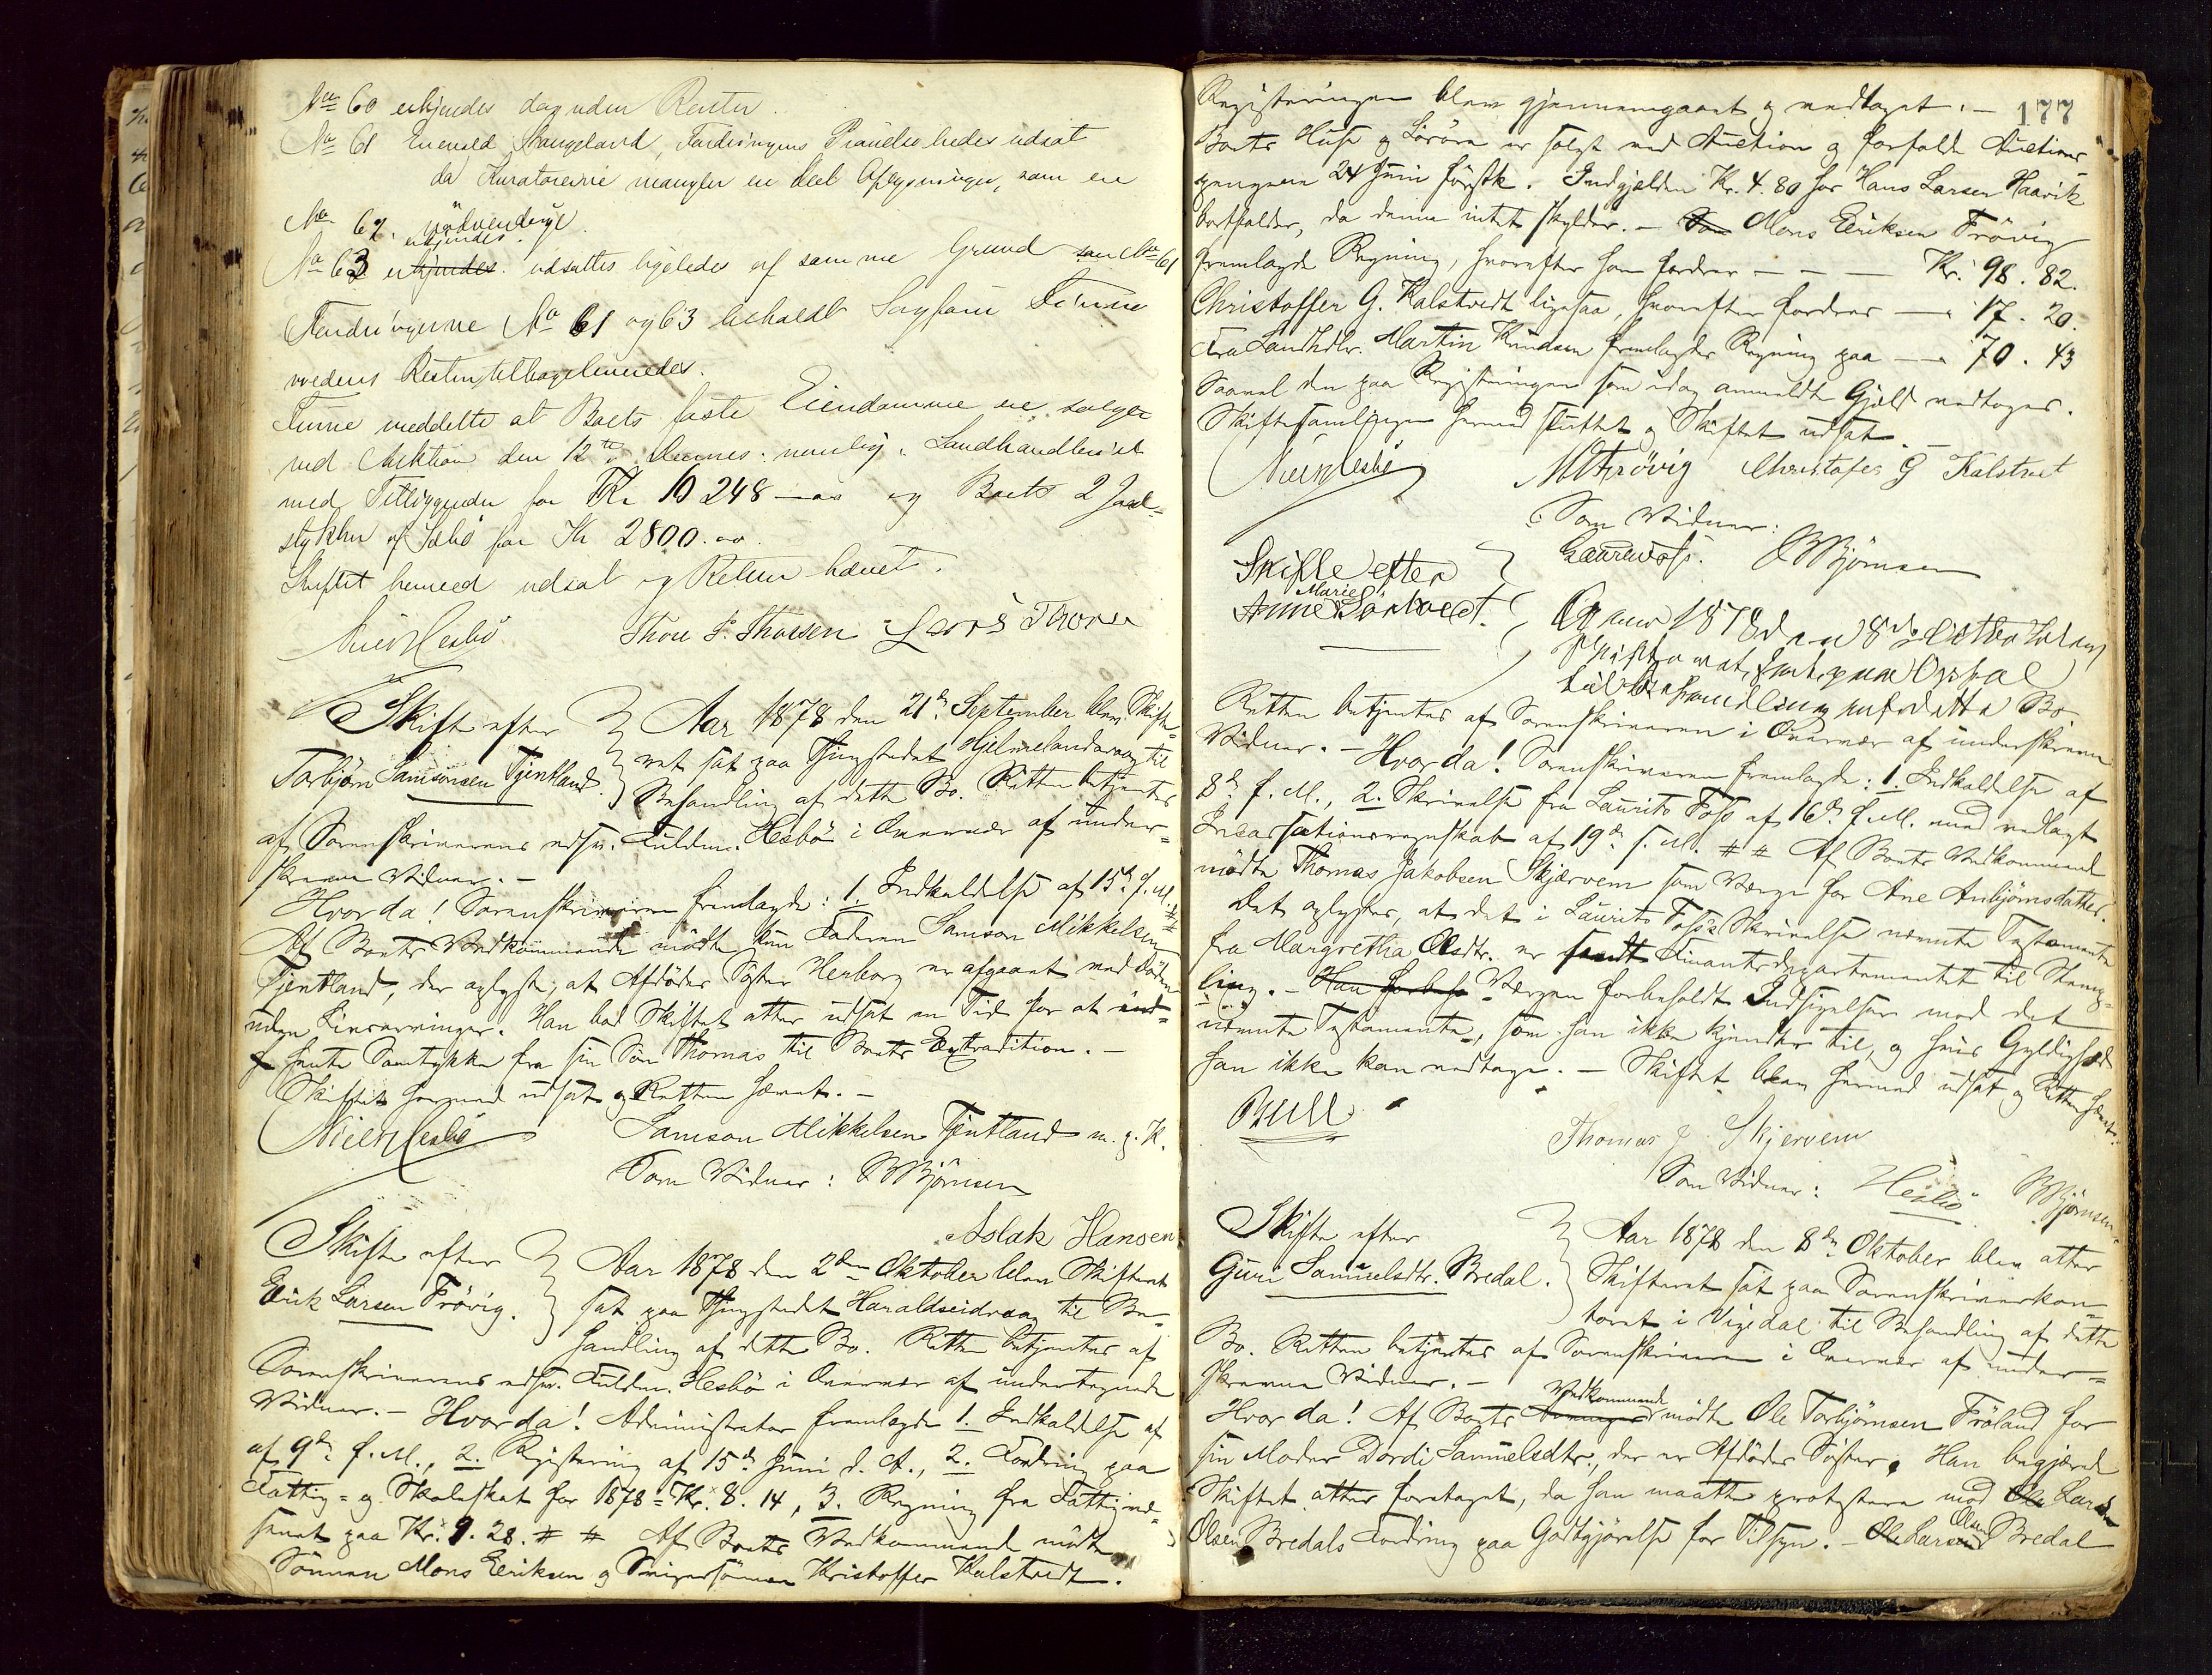 No 60 erkjendes dog uden Renter.
No 61 Enevald Stangeland, Fordringens Prøvelse bedes udsat
da Kuratorerne mangler en Deel Oplysninger, som er
No. 62. nödvendige.
erkjendes.
No 63 erkjendes. udsættes ligeledes af samme Grund som No 61
Fordringerne No 61 og 63 beholdt Sagfører Tunne
mod Tilbageleverelse.
Tunne meddelte at Boets faste Eiendomme ere solgte
ved Auktion den 12te dennes. nemlig: Landhandleriet
med Tilliggende for Kr 10 248 - oo og Boets 2 Jord-
stykker af Sæbö for Kr 2800. oo.
Skiftet hermed udsat og Retten hævet.
Niels Hesbö Thore P. Thorsen Lars Thorsen
Skifte efter
Torbjörn Samsonsen Tjentland.
Aar 1878 den 21de September blev Skifte-
ret sat paa Thingstedet Hjelmelandsvaag til
Behandling af dette Bo. Retten betjentes
af Sorenskriverens edsv. Fuldm. Hesbö i Overvær af under-
skrevne Vidner. -
Hvor da! Sorenskriveren fremlagde: 1. Indkaldelse af 15de f. M. #
Af Boets Vedkommende mödte kun Faderen Samson Mikkelsen
Tjentland, der oplyste, at Afdödes Söster Herborg er afgaaet ved Döden
uden Livsarvinger. Han bad Skiftet atter udsat en Tid for at ind-
hente Samtykke fra sin Sön Thomas til Boets Extradition. -
Skiftet hermed udsat og Retten hævet. -
Niels Hesbö Samson Mikkelsen Tjentland m. p. P.
Som Vidner: O Bjömsen
Aslak Hansen
Skifte efter
Erik Larsen Frövig.
Aar 1878 den 2den Oktober blev Skifteret
sat paa Thingstedet Haraldseidvaag til Be-
handling af dette Bo. Retten betjentes af
Sorenskriverens edsv. Fuldm. Hesbö i Overvær af undertegnede
Vidner. - Hvor da! Administrator fremlagde 1. Indkaldelse af
af 9de f. M., 2. Registrering af 15de Juni d. A., 2. Fordring paa
Fattig- og Skoleskat for 1878 = Kr. 8. 14, 3. Regning fra Fattigvæ-
senet paa Kr. 9. 28. # # Af Boets Vedkommende mödte
Sönnen Mons Eriksen og Svigersönnen Kristoffer Kalstvedt.
177
Registeringen blev gjennemgaaet og vedtaget. -
Boets Huse og Lösöre er solgt ved Auction og forfaldt Auctions-
pengene 24 Juni förstk. Indgjælden Kr. 4. 80 hos Hans Larsen Haavik
bortfalder, da denne intet skylder. - Mons Eriksen Frövig
fremlagde Regning, hvorefter han fordrer - - - Kr. 98. 82.
Christoffer G. Kalstvedt ligesaa, hvorefter fordres - " 17. 20.
Fra Landhdlr. Martin Knudsen fremlagdes Regning paa - " 70. 43
Saavel den paa Registeringen som idag anmeldte Gjæld vedtoges.
Skiftesamlingen hermed sluttet og Skiftet udsat. -
Niels Hesbö M E Frövig Christofer G Kalstvet
Som Vidner:
O Bjömsen
Skifte efter
Marie
Anne
Aar 1878 den 8de Oktober blev
Skifteret sat paa
til Behandling af dette Bo.
Retten betjentes af Sorenskriveren i Overvær af underskrevne
Vidner. - Hvor da! Sorenskriveren fremlagde: 1. Indkaldelse af
8de f. M., 2. Skrivelse fra Laurits Foss af 16de f. M. med vedlagt
Incassationsregnskab af 19de s. M. # # Af Boets Vedkommende
mödte Thomas Jakobsen Skjærvem som Værge for Ane Anbjörnsdatter.
Det oplystes, at det i Laurits Foss's Skrivelse nævnte Testamente
fra Margretha Olsdtr. er sendt Finantsdepartementet til Stemp-
ling. - Han forbeho Værgen forbeholdt Indsigelser mod det
nævnte Testamente, som han ikke kjendte til, og hvis Gyldighed
han ikke kan vedtage. - Skiftet blev hermed udsat og Retten hævet.
Bull
Thomas J. Skjervem
Som Vidner: Hesbö O Bjömsen
Skifte efter
Guri Samuelsdtr. Bredal.
Aar 1878 den 8de Oktober blev atter
Skifteret sat paa Sorenskriverkon-
toret i Vigedal til Behandling af dette
Bo. Retten betjentes af Sorenskriveren i Overvær af under-
skrevne Vidner. -
Vedkommende
Hvor da! Af Boets Arvinger mödte Ole Torbjörnsen Fröland for
sin Moder Dordi Samuelsdtr., der er Afdödes Söster. Han begjærede
Skiftet atter foretaget, da han maatte protestere mod Ole Lars
Olsen Bredals Fordring paa Godtgjörelse for Tilsyn. - Ole Larsen Olsen Bredal